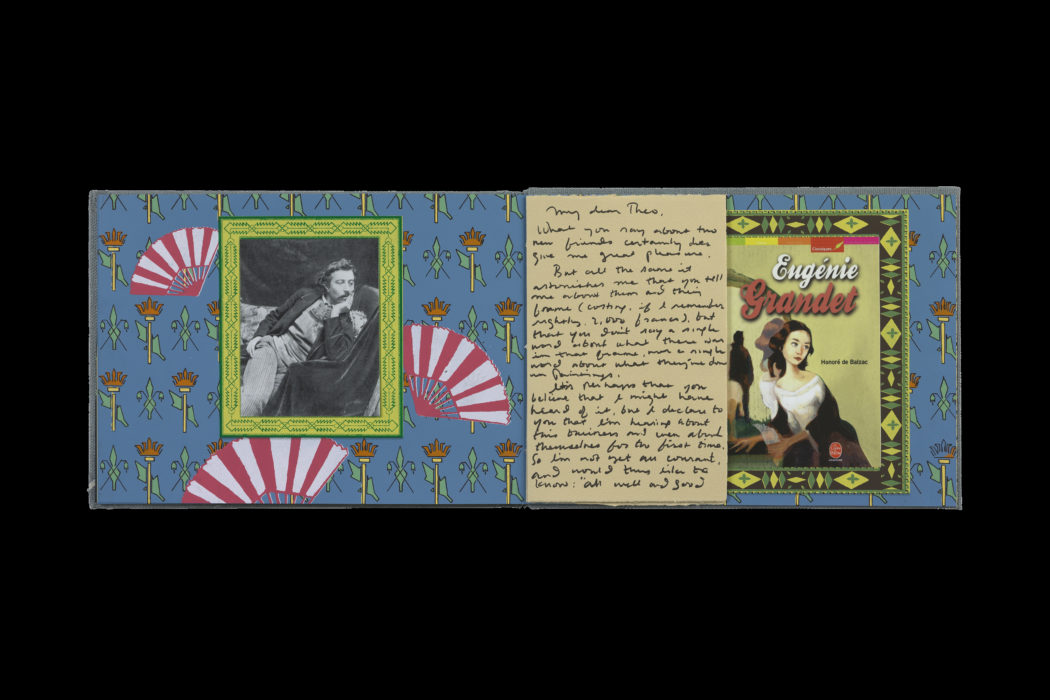 My dear Theo,
What you say about two
new friends certainly does
give me great pleasure.
But all the same it
astonishes me that you tell
me about them and their
frame (costing, if I remember
rightly, 2,000 francs), but
that you don't say a single
word about what there was
in that frame, nor a single
word about what they've done
in paintings.
It's perhaps that you
believe that I might have
heard of it, but I declare to
you that I'm hearing about
this business and even about
themselves for the first time.
So I'm not yet au courant,
and would thus like to
know: "all well and good
Classiques
Eugénie
Grandet
Honoré de Balzac